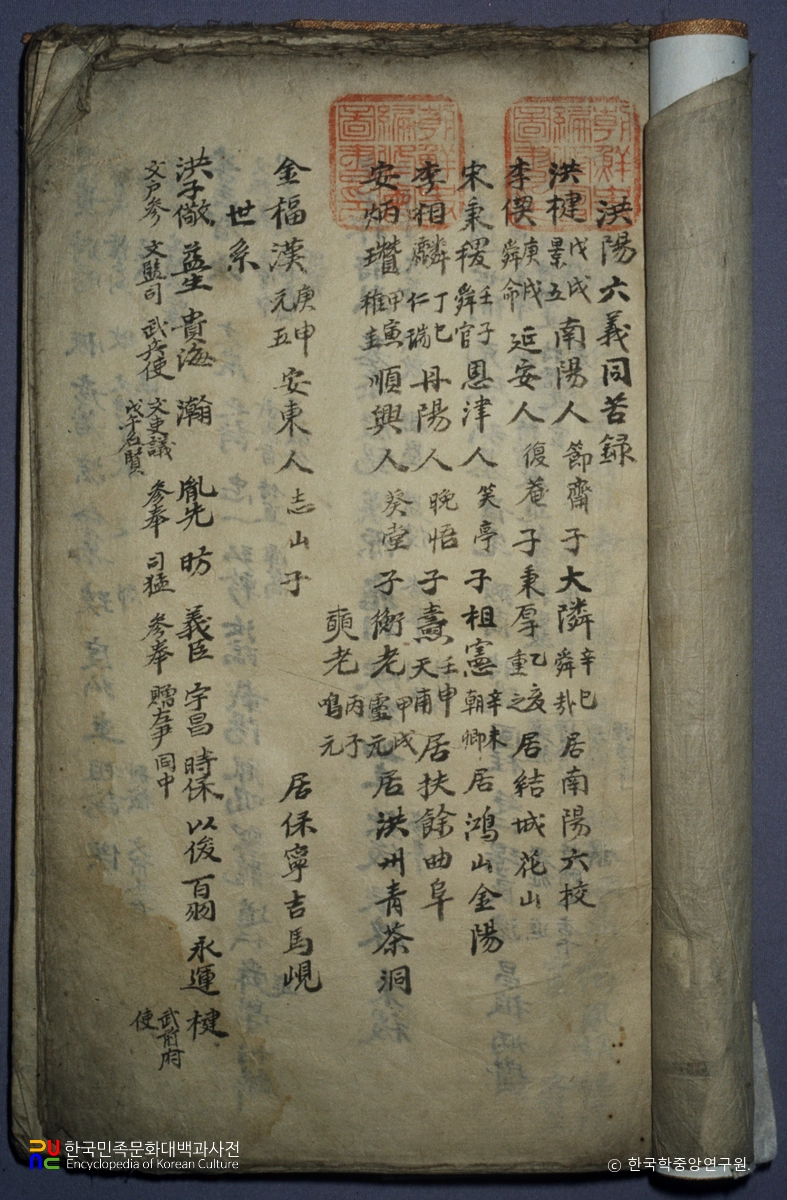 洪陽六義同苦録
洪楗 戊戌 景五 南陽人 節齋 子大隣 辛巳 舜卦 居南陽六校
李偰 庚戌 舜命 延安人 復菴 子秉厚 乙亥 重之 居結城花山
宋秉稷 壬子 舜官 恩津人 笑亭 子祖憲 辛未 朝卿 居鴻山金陽
李相麟 丁巳 仁瑞 丹陽人 晩悟 子燾 壬申 天甫 居扶餘曲阜
安炳瓚 甲寅 稚圭 順興人 葵堂 子衡老 甲戌 靈元 居洪州青茶洞
奭老 丙子 鳴元
金福漢 庚申 元五 安東人 志山 子 居保寧吉馬峴
世系
洪子儆 益生 貴海 瀚 胤先 昉 義臣 宇昌 時保 以俊 百朔 永運 楗
文戸參 文監司 武兵使 文吏議 戊午名賢 參奉 司猛 參奉 贈左尹 同中 武前府使
朝鮮史編修會圖書印
朝鮮史編修會圖書印
한국민족문화대백과사전
Encyclopedia of Korean Culture
© 한국학중앙연구원